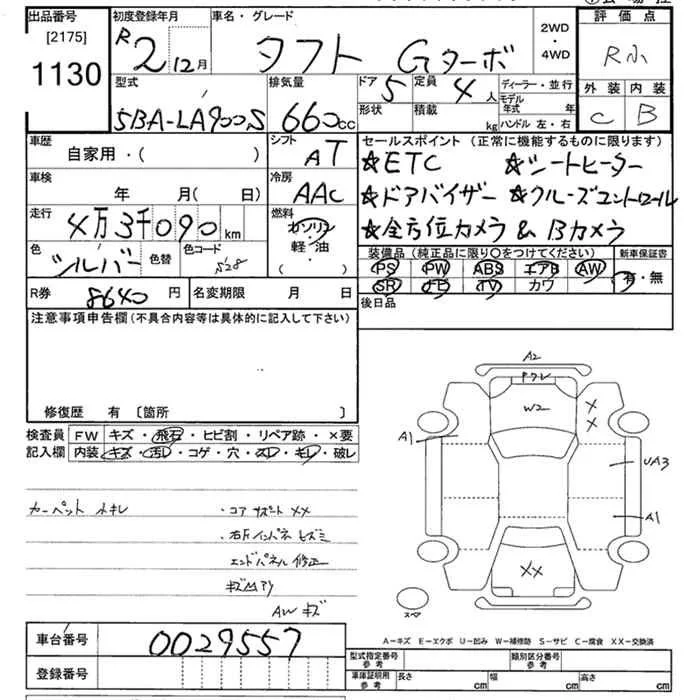 出品番号 初度登録年月 車名・グレード 評価点
[2175] R2年12月 タフト Gターボ 2WD・4WD R小
1130
型式 排気量 ドア 5 定員 4人 ディーラー・並行 外装 内装
5BA-LA900S 660cc 形状 積載 kg モデル年式 年 C B
ハンドル 左・右
車歴 シフト セールスポイント (正常に機能するものに限ります)
自家用・( ) AT ☆ETC ☆シートヒーター
車検 冷房 ☆ドアバイザー ☆クルーズコントロール
年 月(日) AAC ☆全方位カメラ & Bカメラ
走行 4万3千090km 燃料 ガソリン
軽・油
( )
色 シルバー 色替 色コード S28
装備品 (純正品に限り○をつけてください) 新車保証書
PS PW ABS エアB AW 有・無
SR ナビ TV カワ
R券 8640円 名変期限 月 日 後日品
注意事項申告欄 (不具合内容等は具体的に記入して下さい)
修復歴 有 [箇所 ]
検査員 FW キズ・飛石・ヒビ割・リペア跡・×要
記入欄 内装 キズ・汚レ・コゲ・穴・スレ・キレ・破レ
カーペット ・コアサポート XX
エンドパネル 修正
AW キズ
A2
W2
X
X
A1
UA3
A1
XX
スペア
A-キズ E-エクボ U-凹み W-補修跡 S-サビ C-腐食 XX-交換済
車台番号 0029557
型式指定番号 参考 類別区分番号 参考
登録番号 車庫証明用 参考 長さ cm 幅 cm 高さ cm